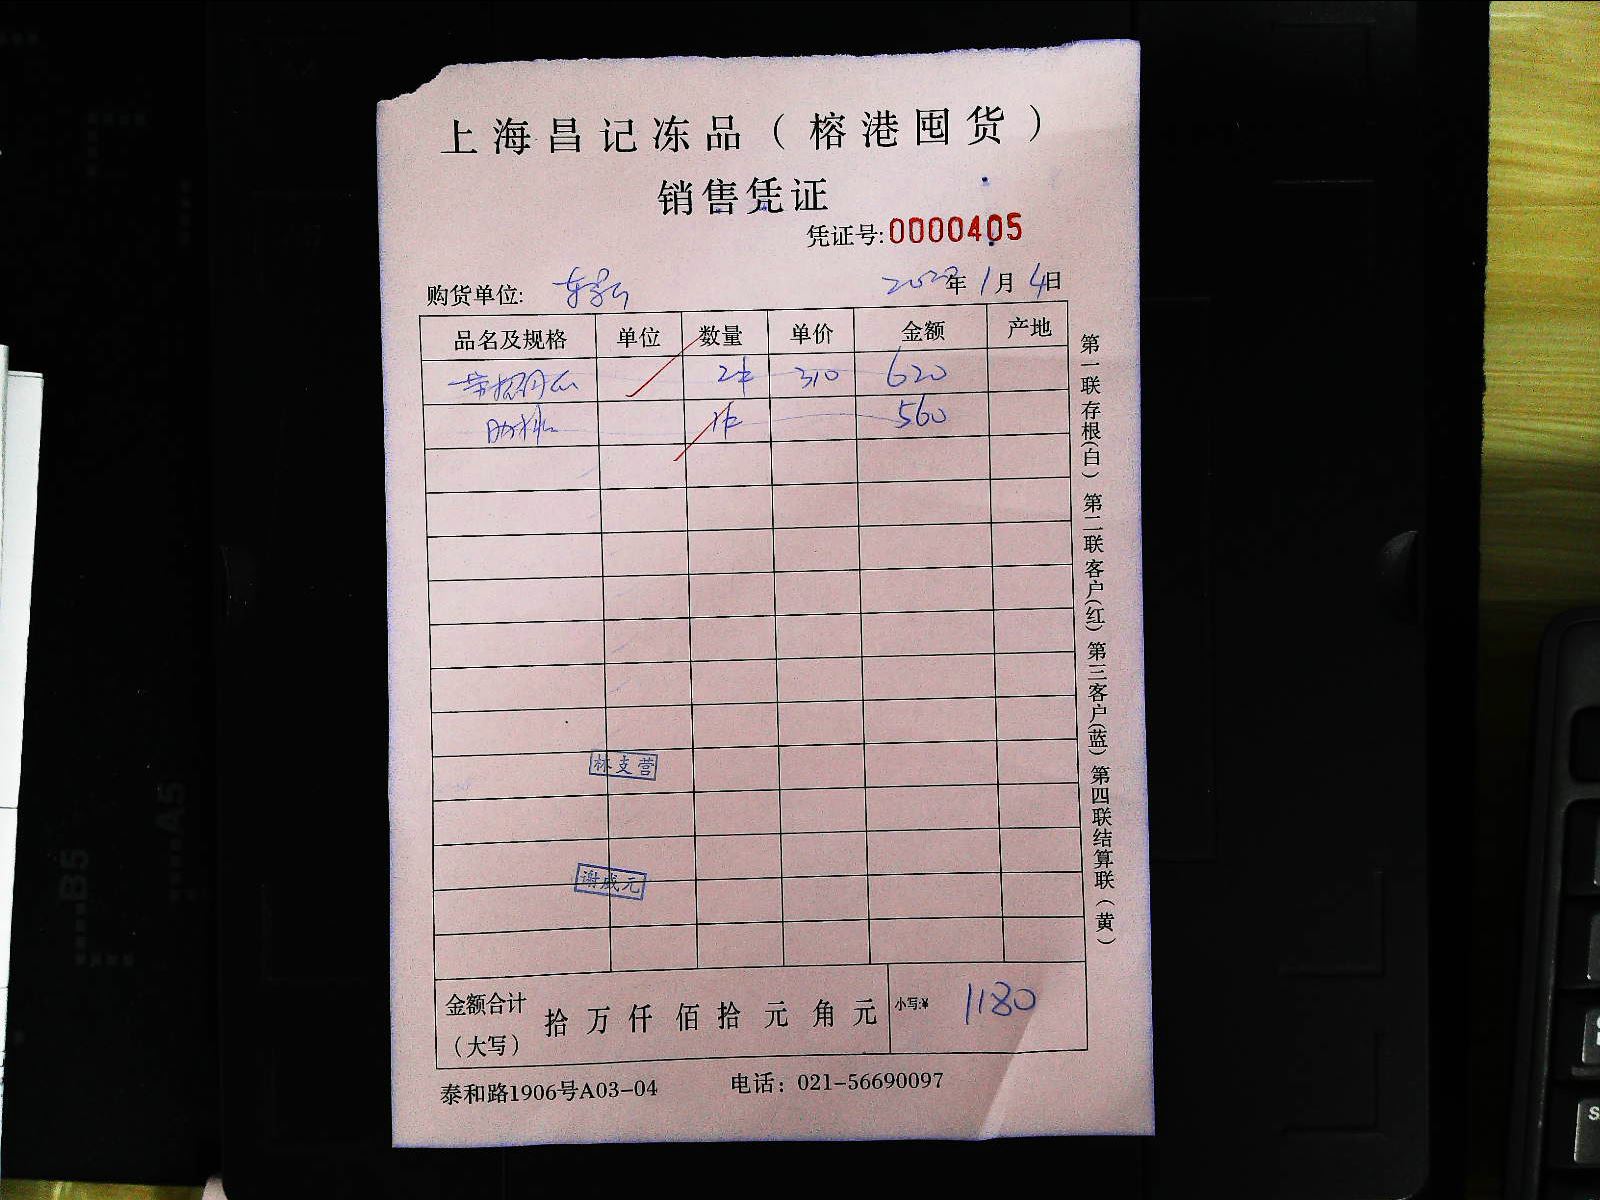 上海昌记冻品（榕港囤货）
销售凭证
凭证号:0000405
购货单位:
年 1月 4日
品名及规格 单位 数量 单价 金额 产地
2 310 620
560
林支营
谢成元
金额合计（大写） 拾 万 仟 佰 拾 元 角 元 小写:¥ 1180
泰和路1906号A03-04 电话：021-56690097
第一联存根(白) 第二联客户(红) 第三客户(蓝) 第四联结算联(黄)
B5
A5